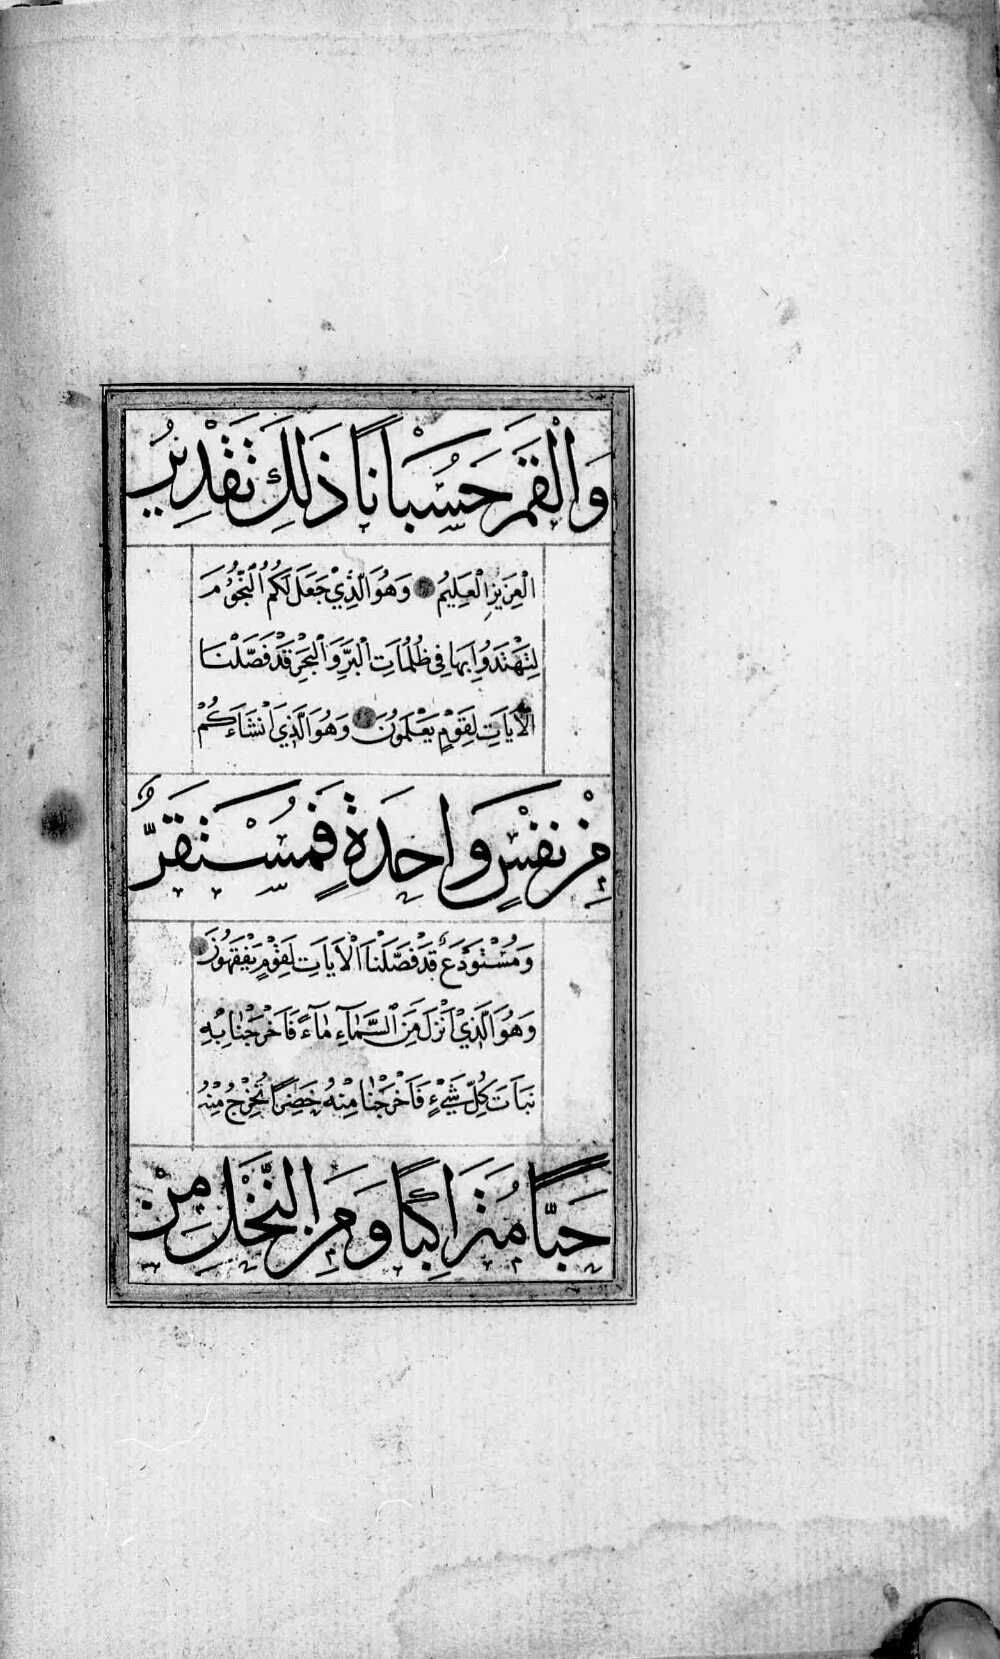 وَالْقَمَرَ حُسْبَانًا ذَلِكَ تَقْدِيرُ
الْعَزِيزِ الْعَلِيمِ وَهُوَ الَّذِي جَعَلَ لَكُمُ النُّجُومَ
لِتَهْتَدُوا بِهَا فِي ظُلُمَاتِ الْبَرِّ وَالْبَحْرِ قَدْ فَصَّلْنَا
الْآيَاتِ لِقَوْمٍ يَعْلَمُونَ وَهُوَ الَّذِي أَنْشَأَكُمْ
مِنْ نَفْسٍ وَاحِدَةٍ فَمُسْتَقَرٌّ
وَمُسْتَوْدَعٌ قَدْ فَصَّلْنَا الْآيَاتِ لِقَوْمٍ يَفْقَهُونَ
وَهُوَ الَّذِي أَنْزَلَ مِنَ السَّمَاءِ مَاءً فَأَخْرَجْنَا بِهِ
نَبَاتَ كُلِّ شَيْءٍ فَأَخْرَجْنَا مِنْهُ خَضِرًا نُخْرِجُ مِنْهُ
حَبًّا مُتَرَاكِبًا وَمِنَ النَّخْلِ مِنْ